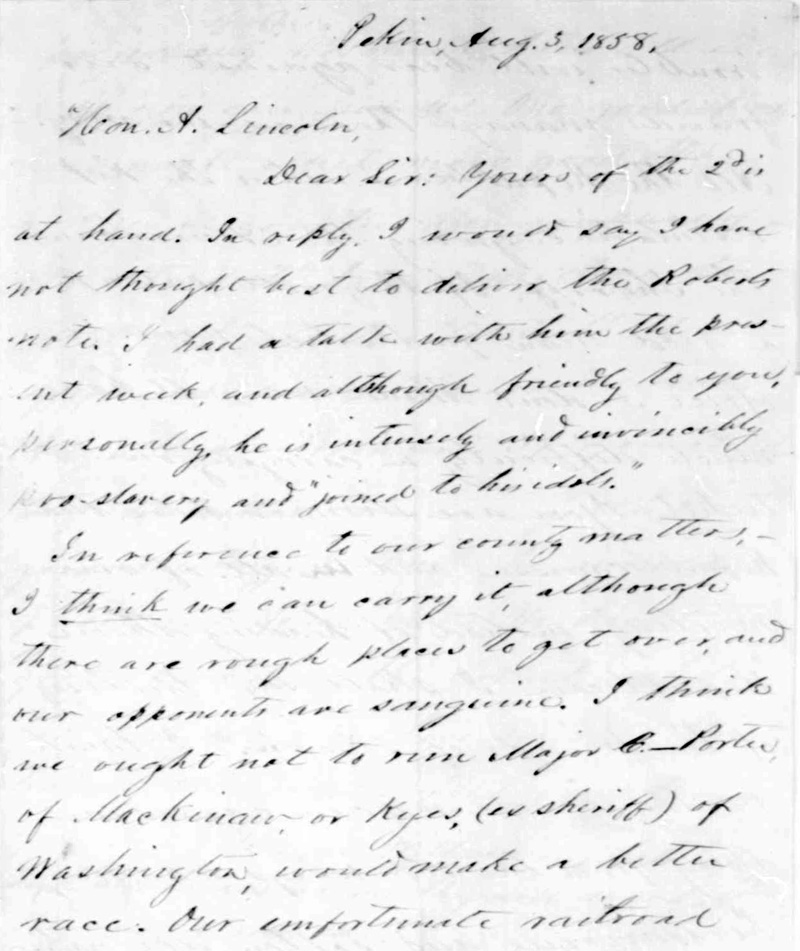 Pekin, Aug. 3, 1858.
Hon. A. Lincoln,
Dear Sir: Yours of the 2d is
at hand. In reply, I would say I have
not thought best to deliver the Roberts
note. I had a talk with him the pres-
ent week, and although friendly to you,
personally, he is intensely and invincibly
pro-slavery and "joined to his idols."
In reference to our county matters,-
I think we can carry it, although
there are rough places to get over, and
our opponents are sanguine. I think
we ought not to run Major C.— Porter,
of Mackinaw, or Kyes, (ex sheriff) of
Washington, would make a better
race. Our unfortunate railroad